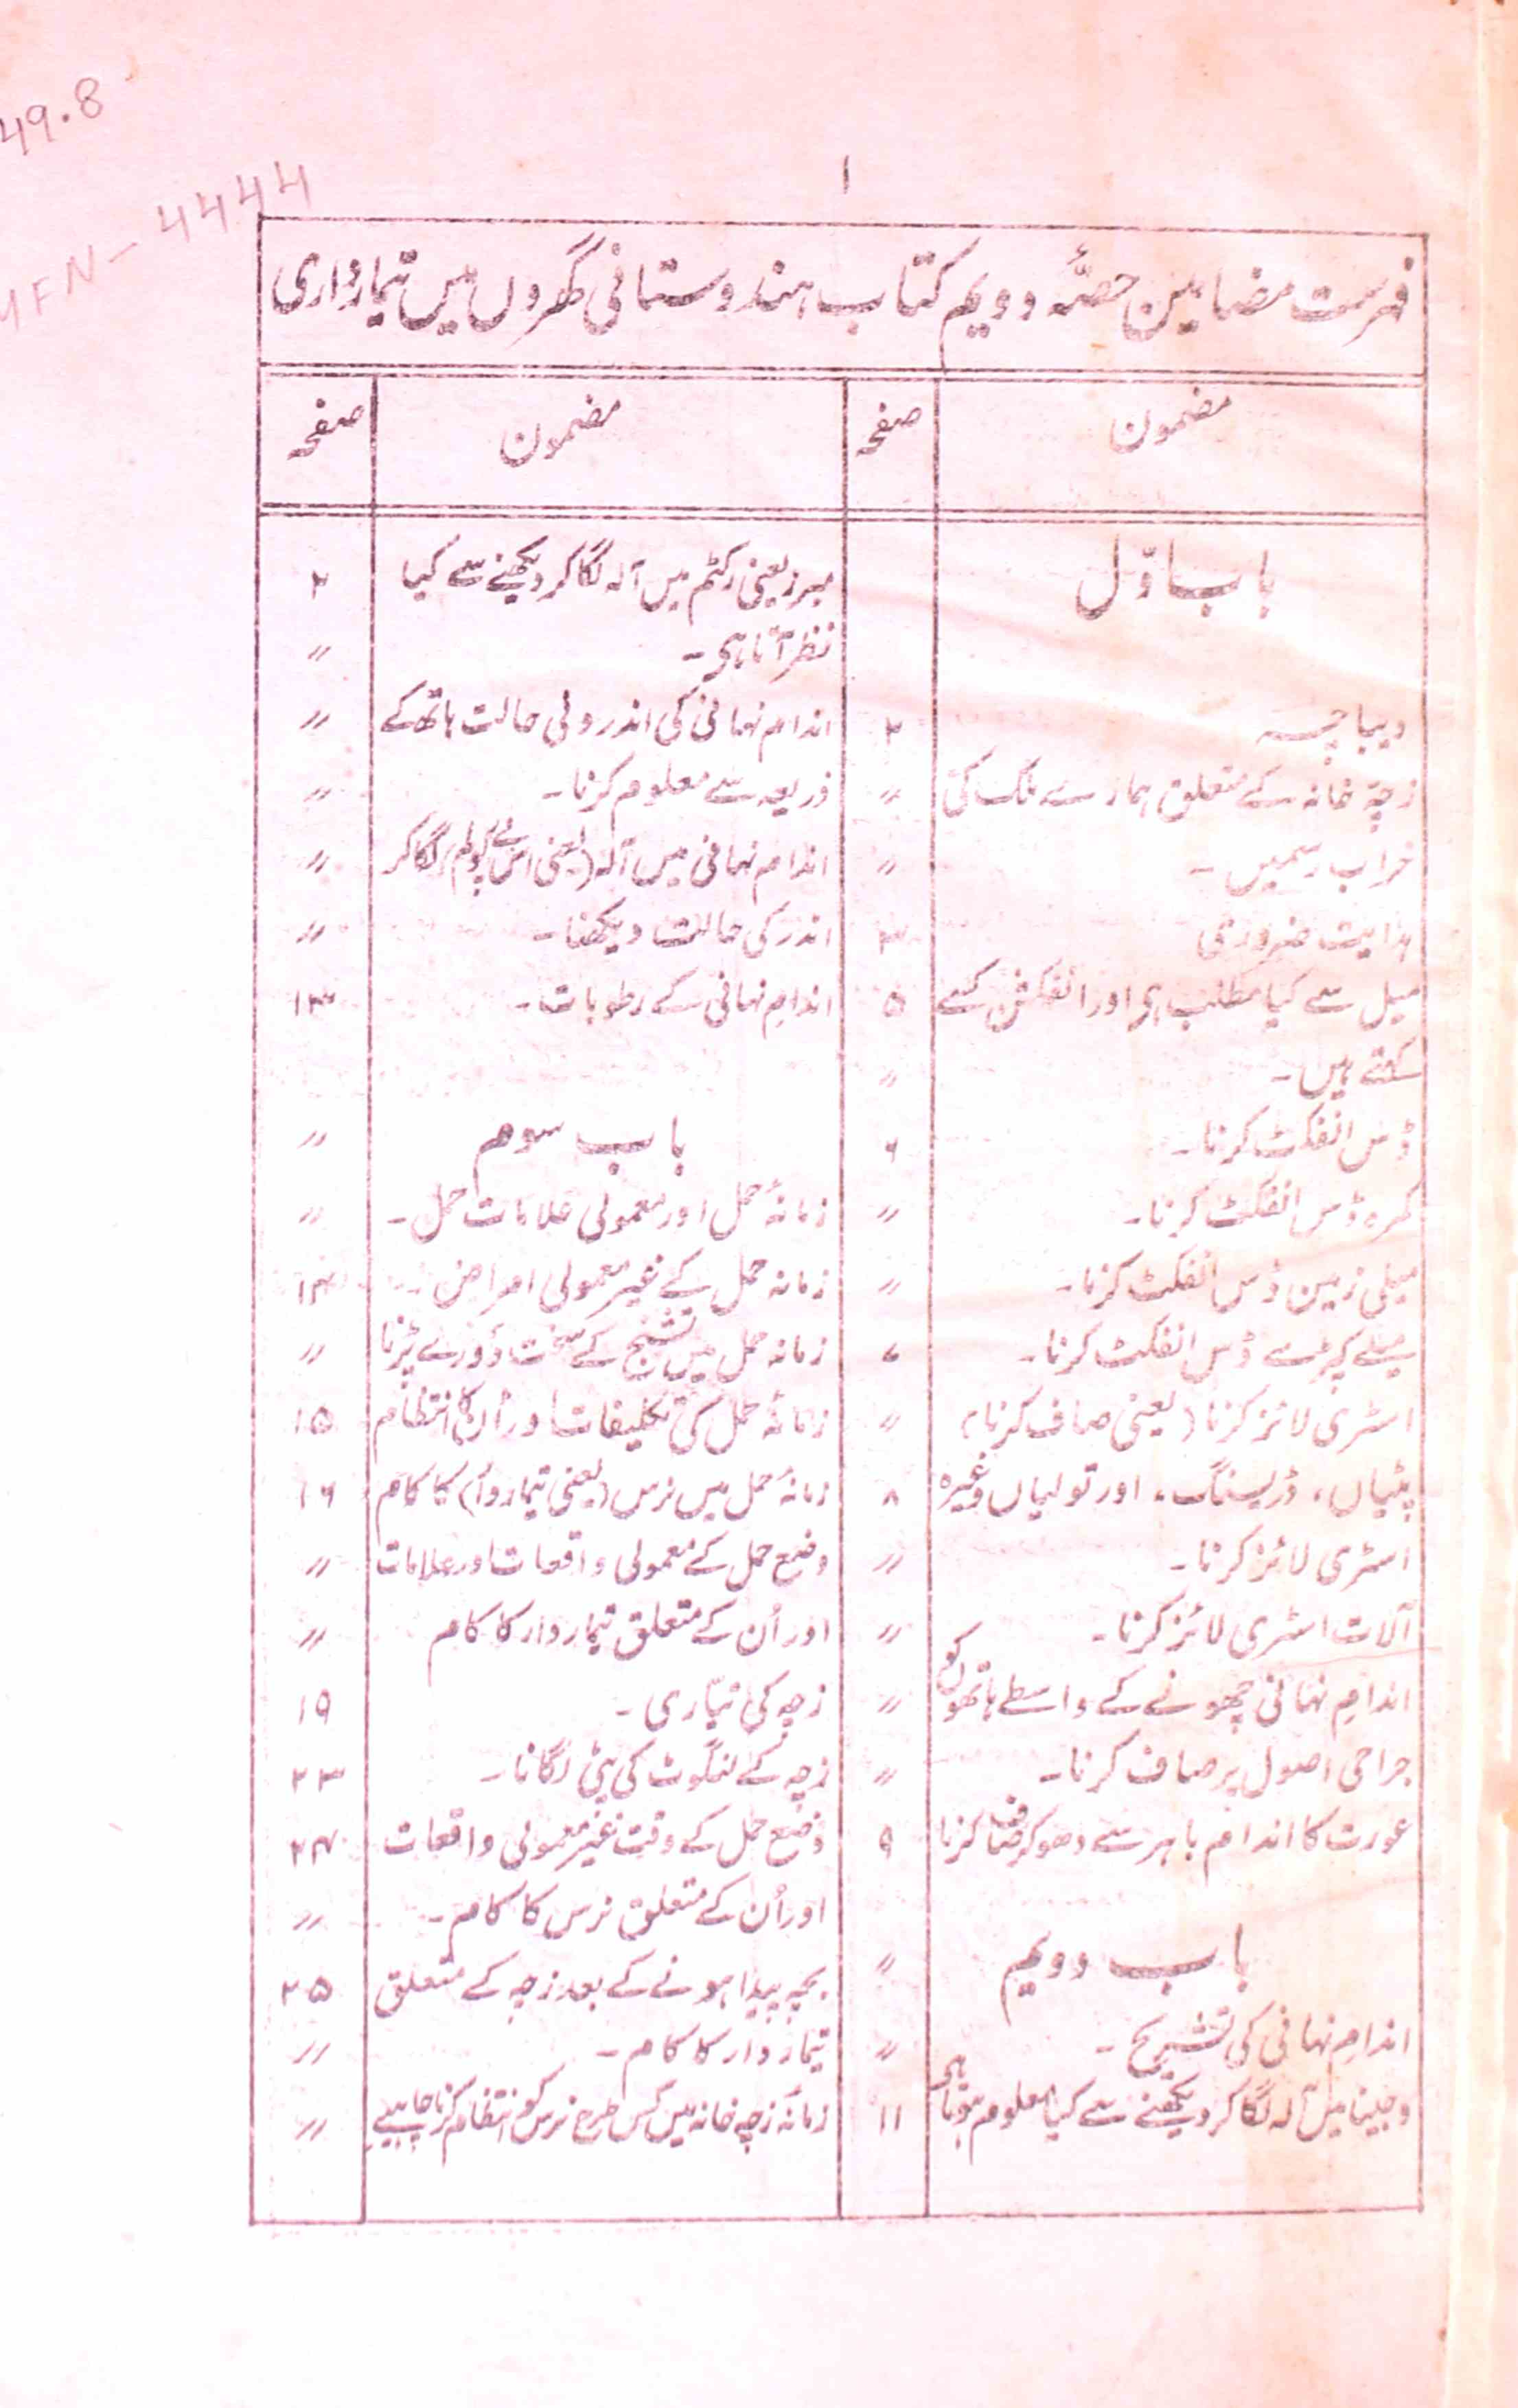 49.8
MFN-4444
۱
فہرست مضامین حصّۂ دویم کتاب ہندوستانی گھروں میں تیمارداری
مضمون صفحہ
باب اوّل
دیباچہ ۲
زچّہ خانہ کے متعلق ہمارے ملک کی ″
خراب رسمیں۔ ″
ہدایت ضروری ۳
میل سے کیا مطلب ہی اور انفکشن کسے ۵
کہتے ہیں۔ ″
ڈس انفکٹ کرنا۔ ۶
کمرہ ڈس انفکٹ کرنا۔ ″
میلی زمین ڈس انفکٹ کرنا۔ ″
میلے کپڑے ڈس انفکٹ کرنا۔ ۷
اسٹری لائز کرنا (یعنی صاف کرنا) ″
پٹیاں، ڈریسنگ، اور تولیاں وغیرہ ۸
اسٹری لائز کرنا۔ ″
آلات اسٹری لائز کرنا۔ ″
اندامِ نہانی چھونے کے واسطے ہاتھوں کو ″
جراحی اصول پر صاف کرنا۔ ″
عورت کا اندام باہر سے دھو کر صاف کرنا ۹
باب دویم ″
اندامِ نہانی کی تشریح۔ ″
وجینا میں آلہ لگا کر دیکھنے سے کیا معلوم ہوتا ہی ۱۱
مضمون صفحہ
مبرز یعنی رکٹم میں آلہ لگا کر دیکھنے سے کیا ۲
نظر آتا ہی۔ ″
اندام نہانی کی اندرونی حالت ہاتھ کے ″
ذریعہ سے معلوم کرنا۔ ″
اندام نہانی میں آلہ (یعنی اس پے کیولم) لگا کر ″
اندر کی حالت دیکھنا۔ ″
اندامِ نہانی کے رطوبات۔ ۱۳
باب سوم ″
زمانۂ حمل اور معمولی علامات حمل۔ ″
زمانہ حمل کے غیر معمولی امراض۔ ۱۴
زمانہ حمل میں تشنج کے سخت دورے پڑنا ″
زمانۂ حمل کی تکلیفات اور اُن کا انتظام ۱۵
زمانۂ حمل میں نرس (یعنی تیماردار) کا کام ۱۶
وضع حمل کے معمولی واقعات اور علامات ″
اور اُن کے متعلق تیماردار کا کام ″
زچہ کی تیّاری۔ ۱۹
زچہ کے لنگوٹ کی پٹی لگانا۔ ۲۳
وضع حمل کے وقت غیر معمولی واقعات ۲۴
اور اُن کے متعلق نرس کا کام۔ ″
بچہ پیدا ہونے کے بعد زچہ کے متعلق ۲۵
تیماردار کا کام۔ ″
زمانۂ زچہ خانہ میں کس طرح نرس کو انتظام کرنا چاہیے ″